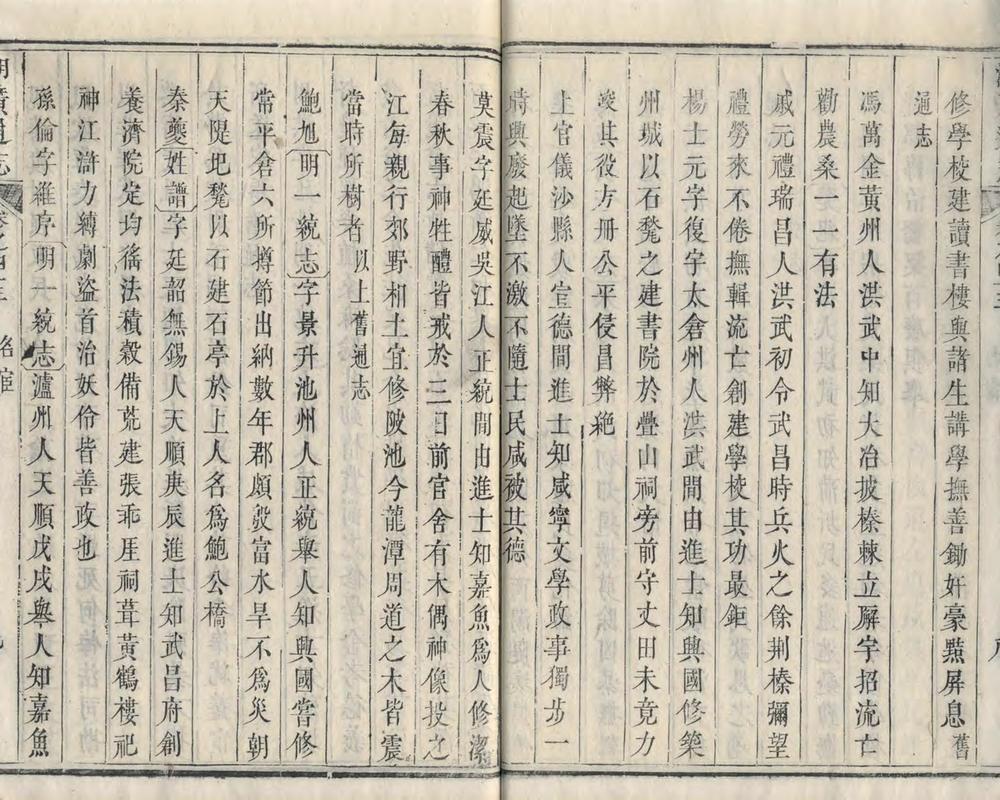 修學校建讀書樓與諸生講學撫善鋤奸豪黠屏息舊
通志
馮萬金黃州人洪武中知大冶披榛棘立廨宇招流亡
勸農桑一一有法
戚元禮瑞昌人洪武初令武昌時兵火之餘荆榛彌望
禮勞來不倦撫輯流亡創建學校其功最鉅
楊士元字復字太倉州人洪武間由進士知興國修築
州城以石甃之建書院於疊山祠旁前守丈田未竟力
竣其役方册公平侵昌弊絶
上官儀沙縣人宣德間進士知咸寧文學政事獨步一
時興廢起墜不激不隨士民咸被其德
莫震字廷威吳江人正統間由進士知嘉魚爲人修潔
春秋事神牲醴皆戒於三日前官舍有木偶神像投之
江每親行郊野相土宜修陂池今龍潭周道之木皆震
當時所樹者以上舊通志
鮑旭明一統志字景升池州人正統舉人知興國嘗修
常平倉六所撙節出納數年郡頗殷富水旱不爲災朝
天隄圯甃以石建石亭於上人名爲鮑公橋
秦夔姓譜字廷韶無錫人天順庚辰進士知武昌府創
養濟院定均徭法積穀備荒建張乖厓祠葺黃鶴樓祀
神江滸力縛劇盜首治妖伶皆善政也
孫倫字維序明一統志瀘州人天順戊戌舉人知嘉魚
名宦